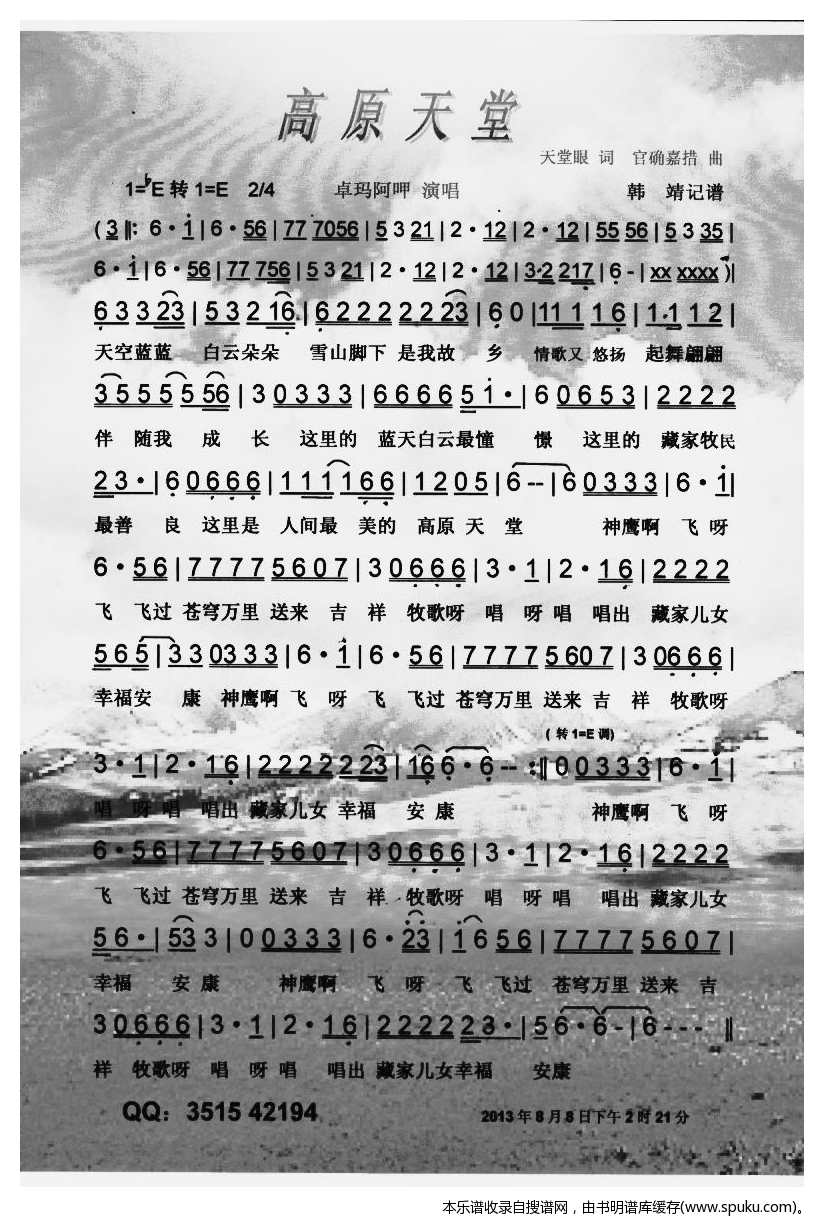 高原天堂
天堂眼 词 官确嘉措 曲
1=♭E 转 1=E 2/4 卓玛阿呷 演唱 韩 靖记谱
( 3 ‖: 6 · i | 6 · 56 | 77 7056 | 5 3 21 | 2 · 12 | 2 · 12 | 55 56 | 5 3 35 |
6 · i | 6 · 56 | 77 756 | 5 3 21 | 2 · 12 | 2 · 12 | 3·2 217 | 6 - | xx xxxx )|
6 3 3 23 | 5 3 2 16 | 6 2 2 2 2 2 23 | 6 0 | 11 1 1 6 | 1·1 1 2 |
天空蓝蓝 白云朵朵 雪山脚下 是我故 乡 情歌又 悠扬 起舞翩翩
3 5 5 5 5 56 | 3 0 3 3 3 | 6 6 6 6 5 i · | 6 0 6 5 3 | 2 2 2 2
伴 随我 成 长 这里的 蓝天白云最憧 憬 这里的 藏家牧民
2 3 · | 6 0 6 6 6 | 1 1 1 1 6 6 | 1 2 0 5 | 6 - - | 6 0 3 3 3 | 6 · i |
最善 良 这里是 人间最 美的 高原 天 堂 神鹰啊 飞 呀
6 · 5 6 | 7 7 7 7 5 6 0 7 | 3 0 6 6 6 | 3 · 1 | 2 · 1 6 | 2 2 2 2
飞 飞过 苍穹万里 送来 吉 祥 牧歌呀 唱 呀 唱 唱出 藏家儿女
5 6 5 | 3 3 0 3 3 3 | 6 · i | 6 · 5 6 | 7 7 7 7 5 6 0 7 | 3 0 6 6 6 |
幸福安 康 神鹰啊 飞 呀 飞 飞过 苍穹万里 送来 吉 祥 牧歌呀
( 转 1=E 调)
3 · 1 | 2 · 1 6 | 2 2 2 2 2 23 | 16 6 · 6 - - :‖ 0 0 3 3 3 | 6 · i |
唱 呀 唱 唱出 藏家儿女 幸福 安 康 神鹰啊 飞 呀
6 · 5 6 | 7 7 7 7 5 6 0 7 | 3 0 6 6 6 | 3 · 1 | 2 · 1 6 | 2 2 2 2
飞 飞过 苍穹万里 送来 吉 祥 牧歌呀 唱 呀 唱 唱出 藏家儿女
5 6 · | 53 3 | 0 0 3 3 3 | 6 · 23 | i 6 5 6 | 7 7 7 7 5 6 0 7 |
幸福 安 康 神鹰啊 飞 呀 飞 飞过 苍穹万里 送来 吉
3 0 6 6 6 | 3 · 1 | 2 · 1 6 | 2 2 2 2 2 3 · | 5 6 · 6 - | 6 - - - ‖
祥 牧歌呀 唱 呀 唱 唱出 藏家儿女幸福 安康
QQ：3515 42194
2013 年 8 月 8 日下午 2 时 21 分
本乐谱收录自搜谱网，由书明谱库缓存(www.spuku.com)。